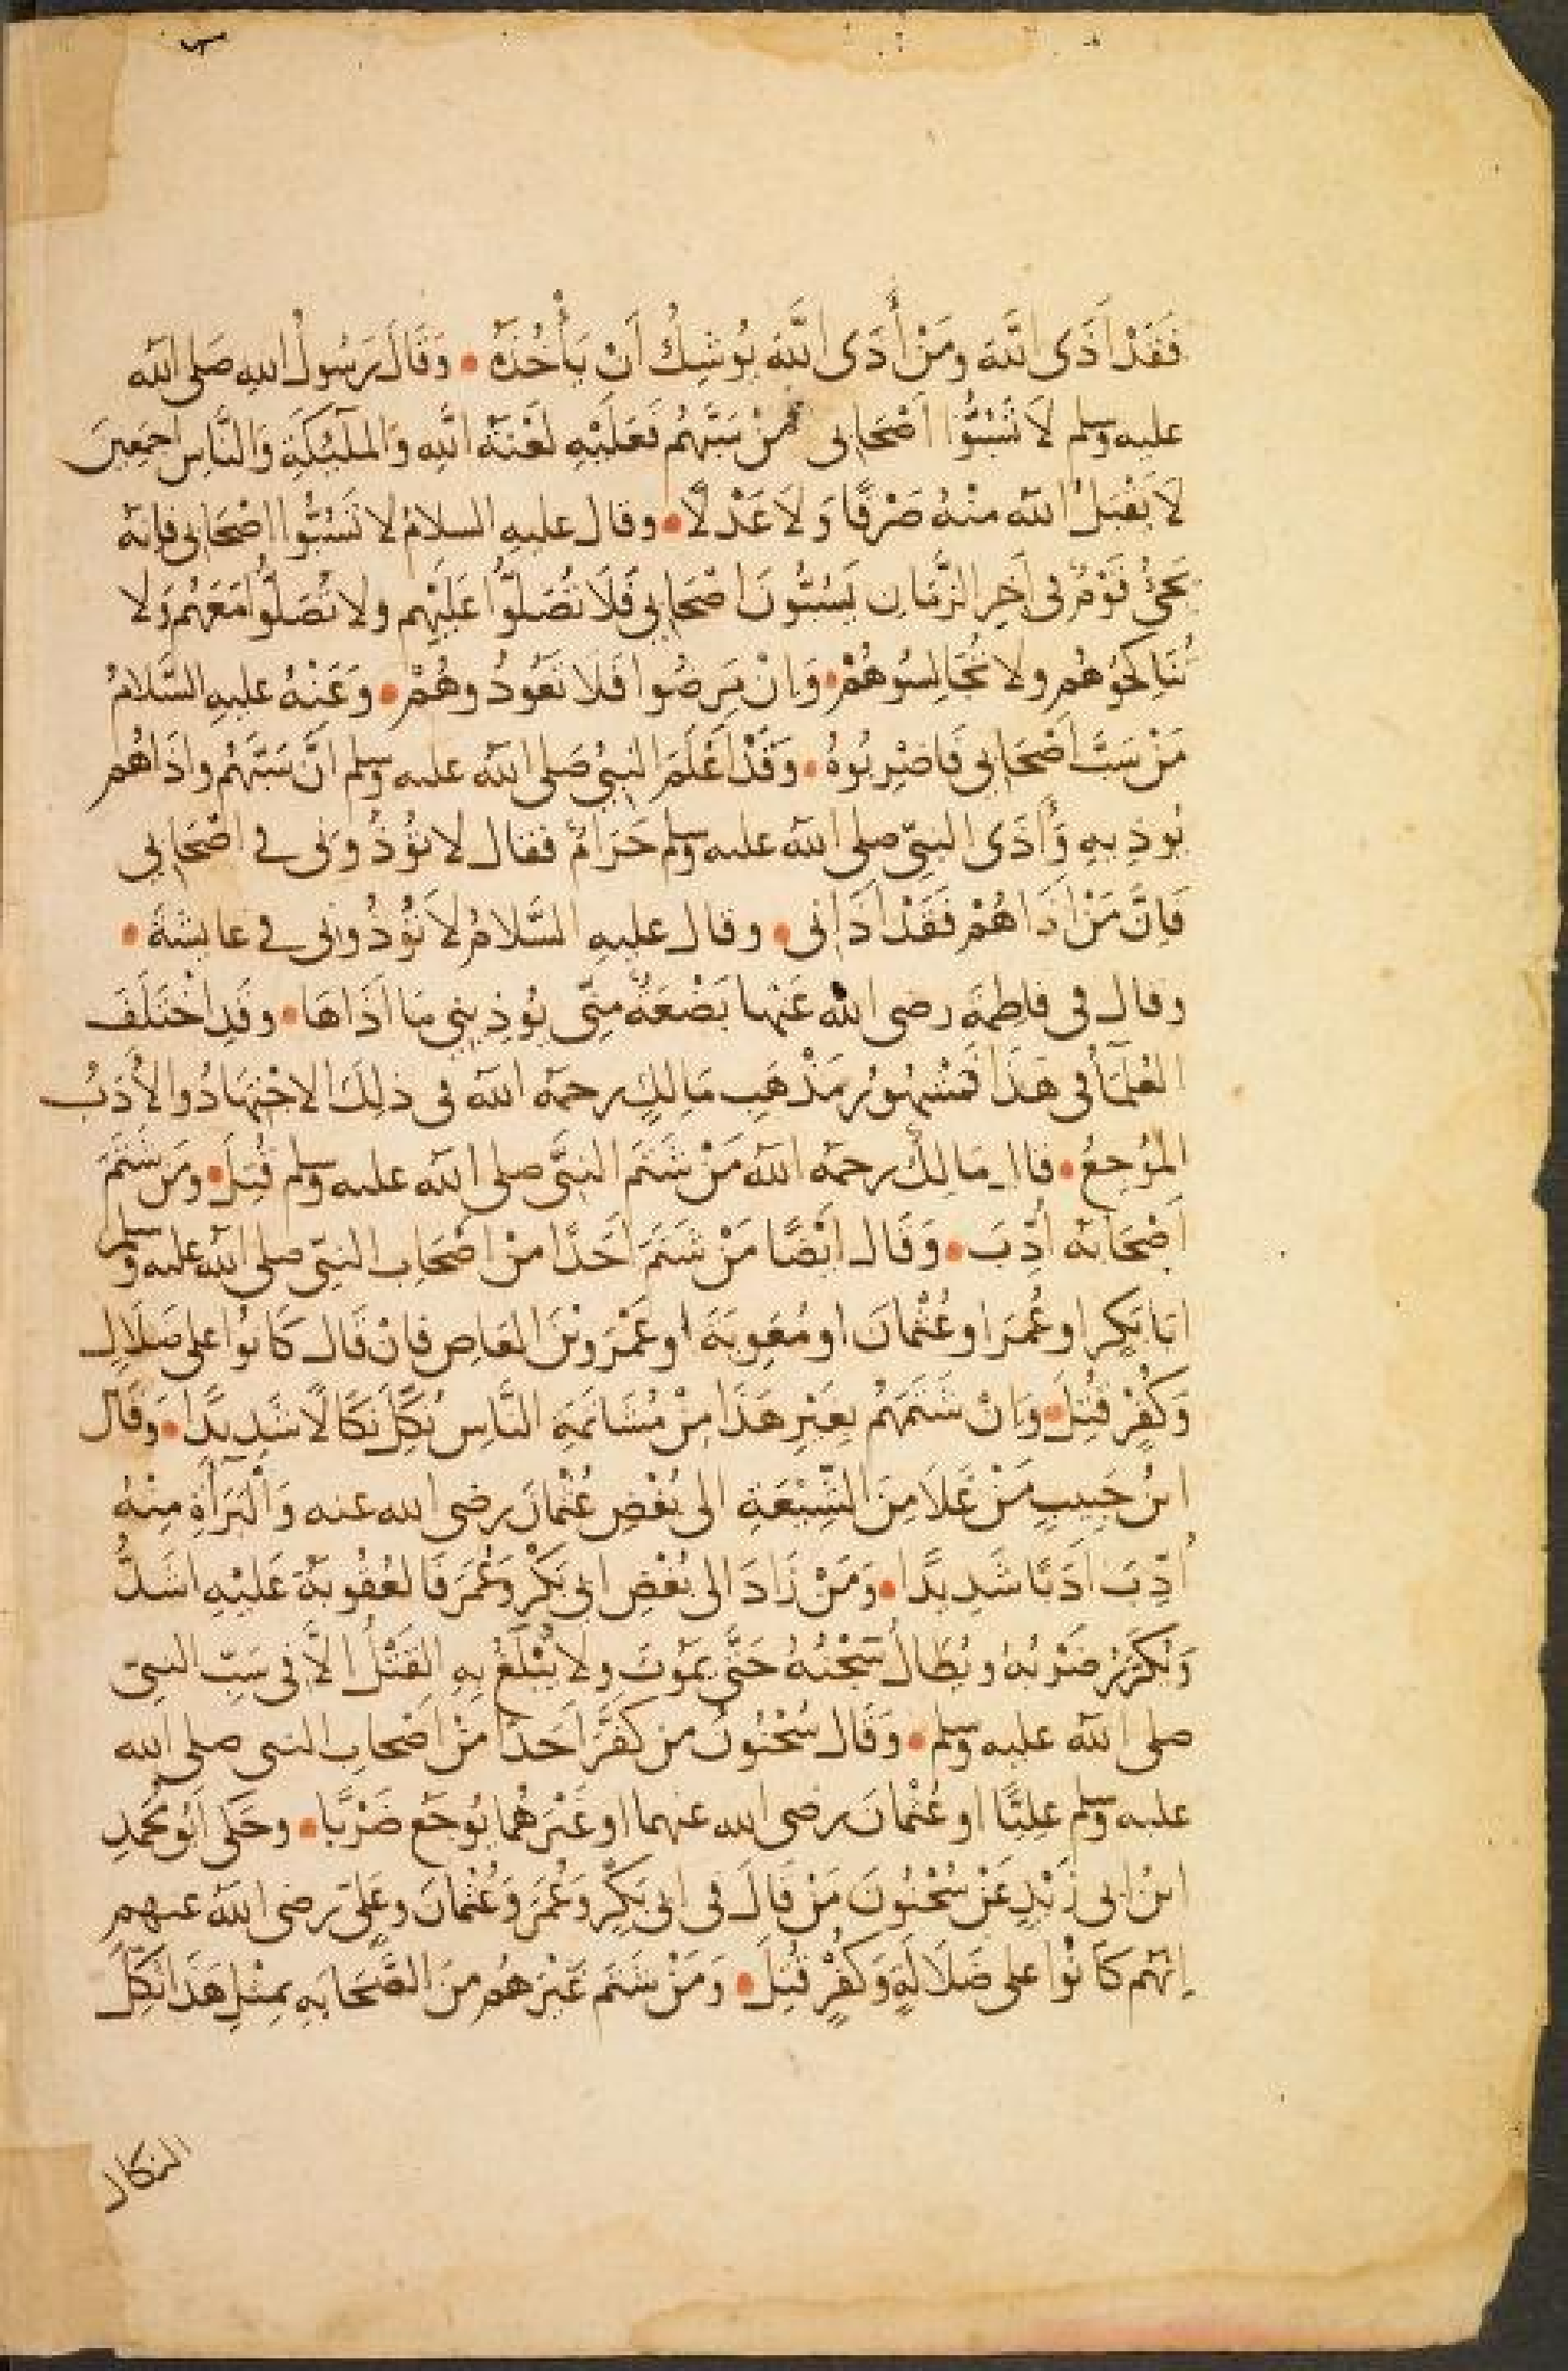 فَقَدْ اَذَى اللّٰهَ ومَنْ أَذَى اللّٰهَ يُوشِكُ اَنْ يَأْخُذَهُ • وَقَالَ رَسُولُ اللهِ صَلى الله
عليه وسلم لاَ تَسُبُّوا اَصْحَابى فمَنْ سَبَّهُم فَعَلَيْهِ لَعْنَةُ اللهِ وَالملٰئِكَةِ وَالنَّاسِ اجمَعِينَ
لاَ يَقْبَلُ الله منْهُ صَرْفًا وَلاَ عَدْلًا • وقال عليهِ السلامُ لا تَسُبُّوا اصْحَابى فإنهُ
يَجئُ قَوْمٌ فى اٰخِرِ الزَّمَانِ يَسُبُّونَ اصْحَابِي فَلَا تُصَلُّوا عَلَيْهِم ولا تُصَلُّوا مَعَهُم وَلا
تُنَاكِحُوهُم ولا تُجَالِسُوهُمْ • وَاِنْ مَرِضُوا فَلَا تَعُودُوهُمْ • وَعَنْهُ عليهِ السَّلامُ
مَنْ سَبَّ اَصْحَابِي فَاضْرِبُوهُ • وَقَدْ اَعْلَمَ النبِيُّ صَلى الله عليه وسلم اَنَّ سَبَّهُم واذَاهُم
يُوذِيهِ وَأَذَى النبِيّ صلى الله عليه وسلم حَرَامٌ فقال لا تؤْذُونى فى اصْحَابِي
فَاِنَّ مَنْ اٰذَاهُمْ فَقَدْ اٰذَانى • وقال عليهِ السَّلامُ لاَ تُؤْذُونى فى عايشةَ •
وقال فى فاطِمَةَ رضى الله عَنْها بَضْعَةٌ مِنّى يُوذِينِي مَا اٰذَاهَا • وقَدِ اخْتَلَفَ
العُلَمَاُ فى هَذَا فَمَشْهُورُ مَذْهَبِ مَالِكٍ رحمَهُ اللهُ فى ذلِكَ الاجْتِهَادُ والاَدَبُ
المُوجِعُ • قال مَالِكٌ رحمَهُ اللهُ مَنْ شَتَمَ النبِيَّ صلى الله عليه وسلم قُتِلَ • ومَن شَتَمَ
اَصْحَابَهُ اُدِّبَ • وَقَال اَيْضًا مَنْ شَتَمَ اَحَدًا منْ اصْحَابِ النبِيّ صلى الله عليه وسلم
ابَا بَكرٍ او عُمَرَ او عُثْمانَ او مُعَوِيَةَ او عَمْرَو بْنَ العَاصِ فاِنْ قَال كَانوُا على ضَلَالٍ
وَكُفْرٍ قُتِلَ • وَاِنْ شَتَمَهُم بِغَيْرِ هَذَا مِنْ مُشَاتمَةِ النَّاسِ نُكِّلَ نَكَالًا شَدِيدًا • وَقَال
ابنُ حَبِيبٍ مَنْ غَلَا مِنَ الشِّيْعَةِ الى بُغْضِ عُثْمانَ رضى الله عنه وَالْبَرَآءَةِ مِنْهُ
اُدِّبَ اَدَبًا شَدِيدًا • وَمَنْ زَادَ الى بُغْضِ ابى بَكْرٍ وَعُمَرَ فَالعُقُوبَةُ عَلَيْهِ اشَدُّ
وَيُكَرَّرُ ضَرْبُهُ ويُطَالُ سَجْنُهُ حَتَّى يَمُوتَ ولا يُبْلَغُ بِهِ القَتْلُ اِلَّا فى سَبّ النبِيّ
صلى الله عليه وسلم • وَقَال سُحْنُونٌ من كَفَّرَ اَحَدًا مِنْ اَصْحابِ النبى صلى الله
عليه وسلم عليًّا او عُثْمانَ رضى الله عنهما او غَيْرَهُما يُوجَعُ ضَرْبًا • وحَكَى اَبُو مُحَمدِ
ابنُ ابى زَيْدٍ عَنْ سُحْنُونَ مَنْ قَالَ فى ابى بَكْرٍ وَعُمَرَ وَعُثْمانَ وعَلِيّ رضى الله عنهم
اِنَّهُم كَانُوا على ضَلَالَةٍ وَكُفْرٍ قُتِلَ • وَمَنْ شَتَمَ غَيْرَهُم مِنَ الصَّحَابَةِ بِمِثْلِ هَذَا نُكِّلَ
النكال